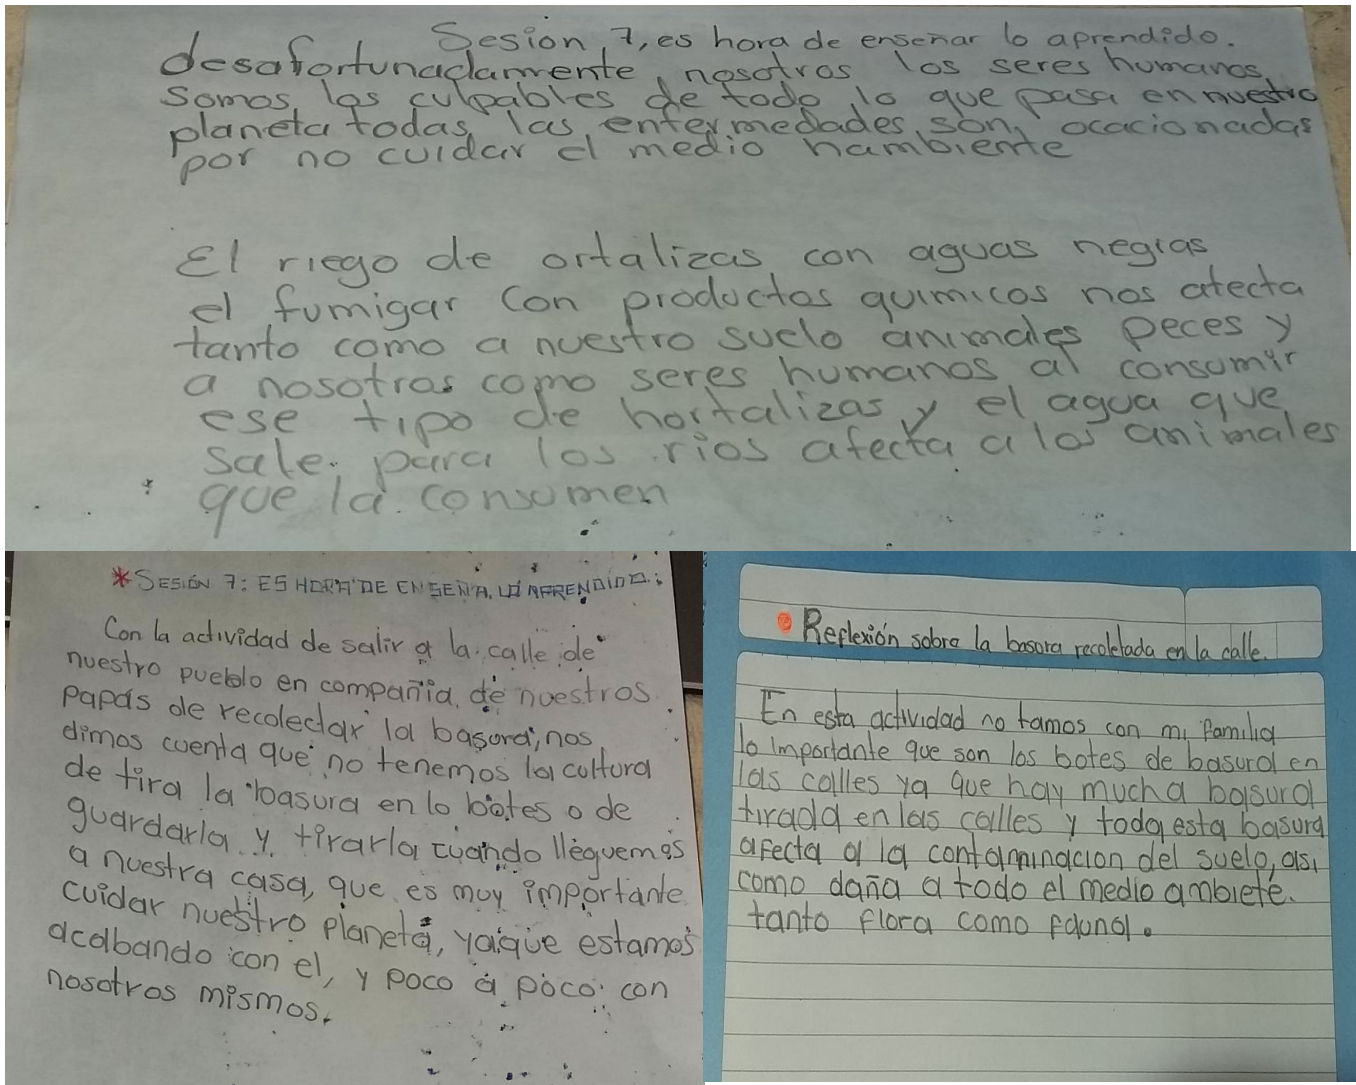 Sesion 7, es hora de enseñar lo aprendido.
desafortunadamente, nosotros los seres humanos
Somos los culpables de todo lo que pasa en nuestro
planeta todas las enfermedades son ocacionadas
por no cuidar el medio hambiente
El riego de ortalizas con aguas negras
el fumigar con productos quimicos nos afecta
tanto como a nuestro suelo animales peces y
a nosotros como seres humanos al consumir
ese tipo de hortalizas y el agua que
sale para los rios afecta a los animales
que la consumen
*SESIÓN 7: ES HORA DE ENSEÑA LO APRENDIDO.
Con la actividad de salir a la calle de
nuestro pueblo en compañia de nuestros
papás de recolectar la basura, nos
dimos cuenta que no tenemos la cultura
de tira la basura en lo botes o de
guardarla y tirarla cuando lleguemos
a nuestra casa, que es muy importante
cuidar nuestro planeta, ya que estamos
acabando con el, y poco a poco con
nosotros mismos.
Reflexión sobre la basora recoletada en la calle.
En esta actividad no tamos con mi familia
lo importante que son los botes de basura en
las calles ya que hay mucha basura
tirada en las calles y toda esta basura
afecta a la contaminacion del suelo, asi
como daña a todo el medio ambiete.
tanto flora como fauna.